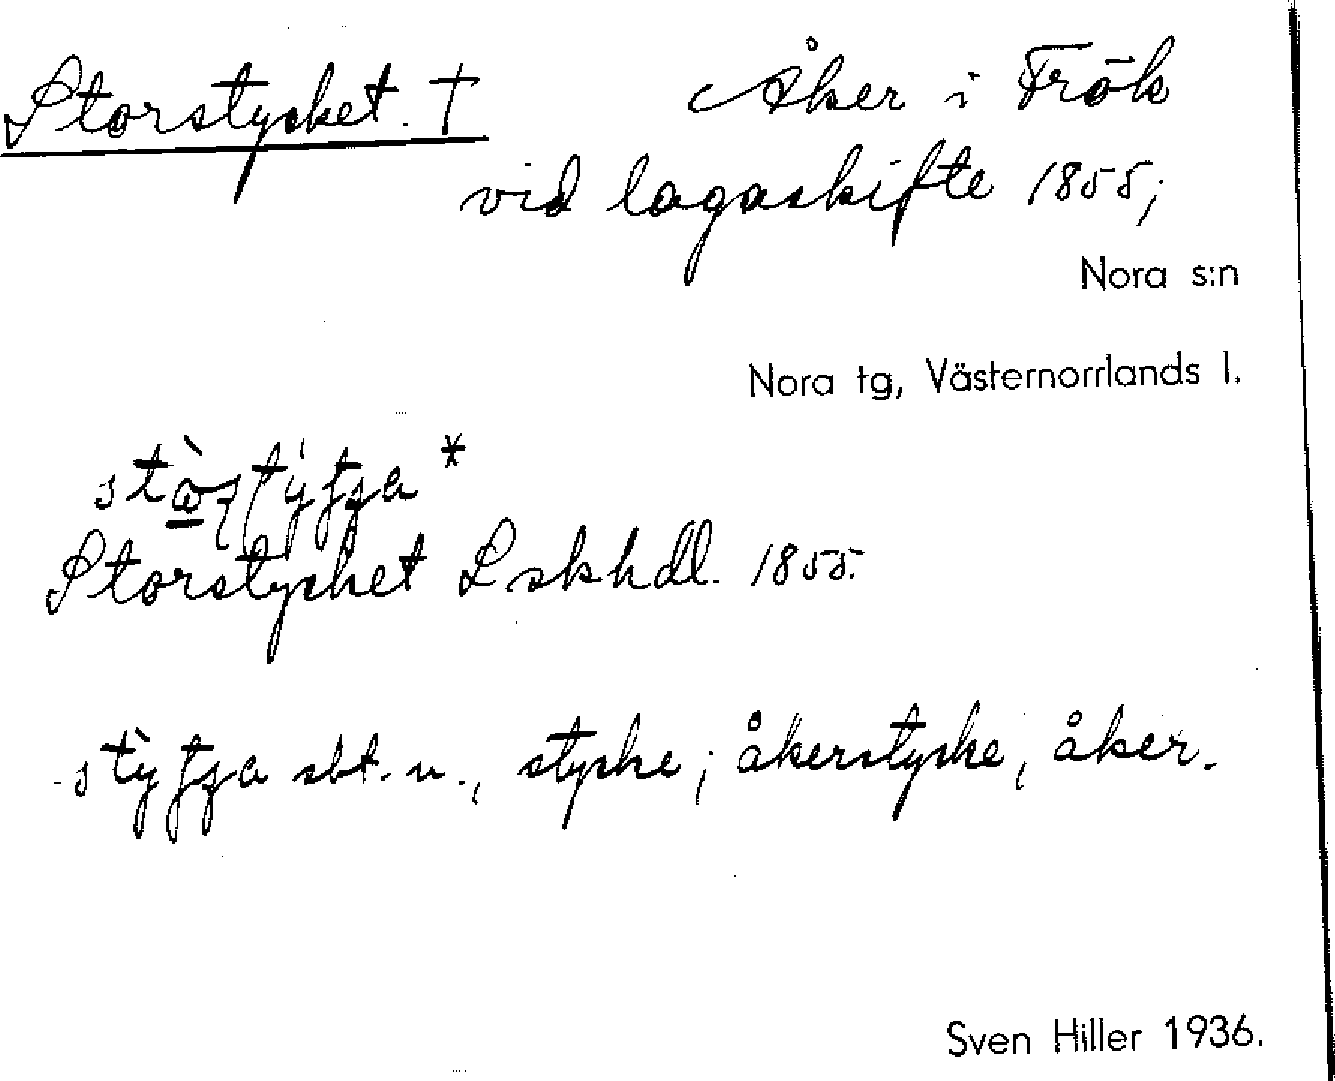 Storstycket. † Åker i Frök
vid lagaskifte 1855;
Nora s:n
Nora tg, Västernorrlands l.
Storstycket Lskhdl. 1855.
sbt. n., stycke; åkerstycke, åker.
Sven Hiller 1936.